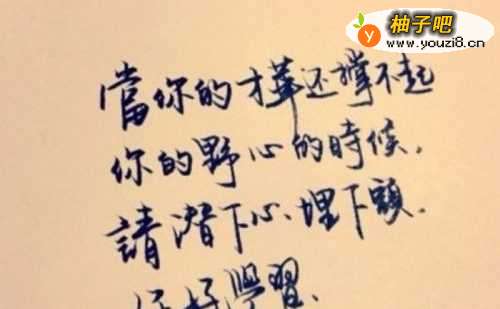 柚子吧
www.youzi8.cn
當你的才華还撐不起
你的野心的時候,
請潜下心、埋下頭,
好好學習、